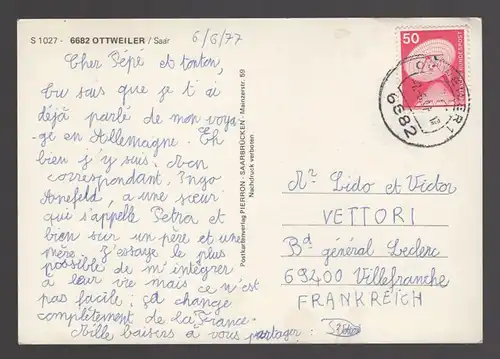 S 1027 - 6682 OTTWEILER / Saar
6/6/77
Cher Pépé et tonton,
tu sais que je t'ai
déjà parlé de mon voya
ge en Allemagne. Eh
bien j'y suis. Mon
correspondant, Ingo
a une sœur
qui s'appelle Petra et
bien sur un père et une
mère. J'essaye le plus
possible de m'intégrer
à leur vie mais ce n'est
pas facile ; ça change
complètement de la France.
Mille baisers à vous partager :
Postkartenverlag PIERRON - SAARBRÜCKEN - Mainzerstr. 59
Nachdruck verboten
50
DEUTSCHE BUNDESPOST
6682
Mr Lido et Victor
VETTORI
Bd général Leclerc
69400 Villefranche
FRANKREICH